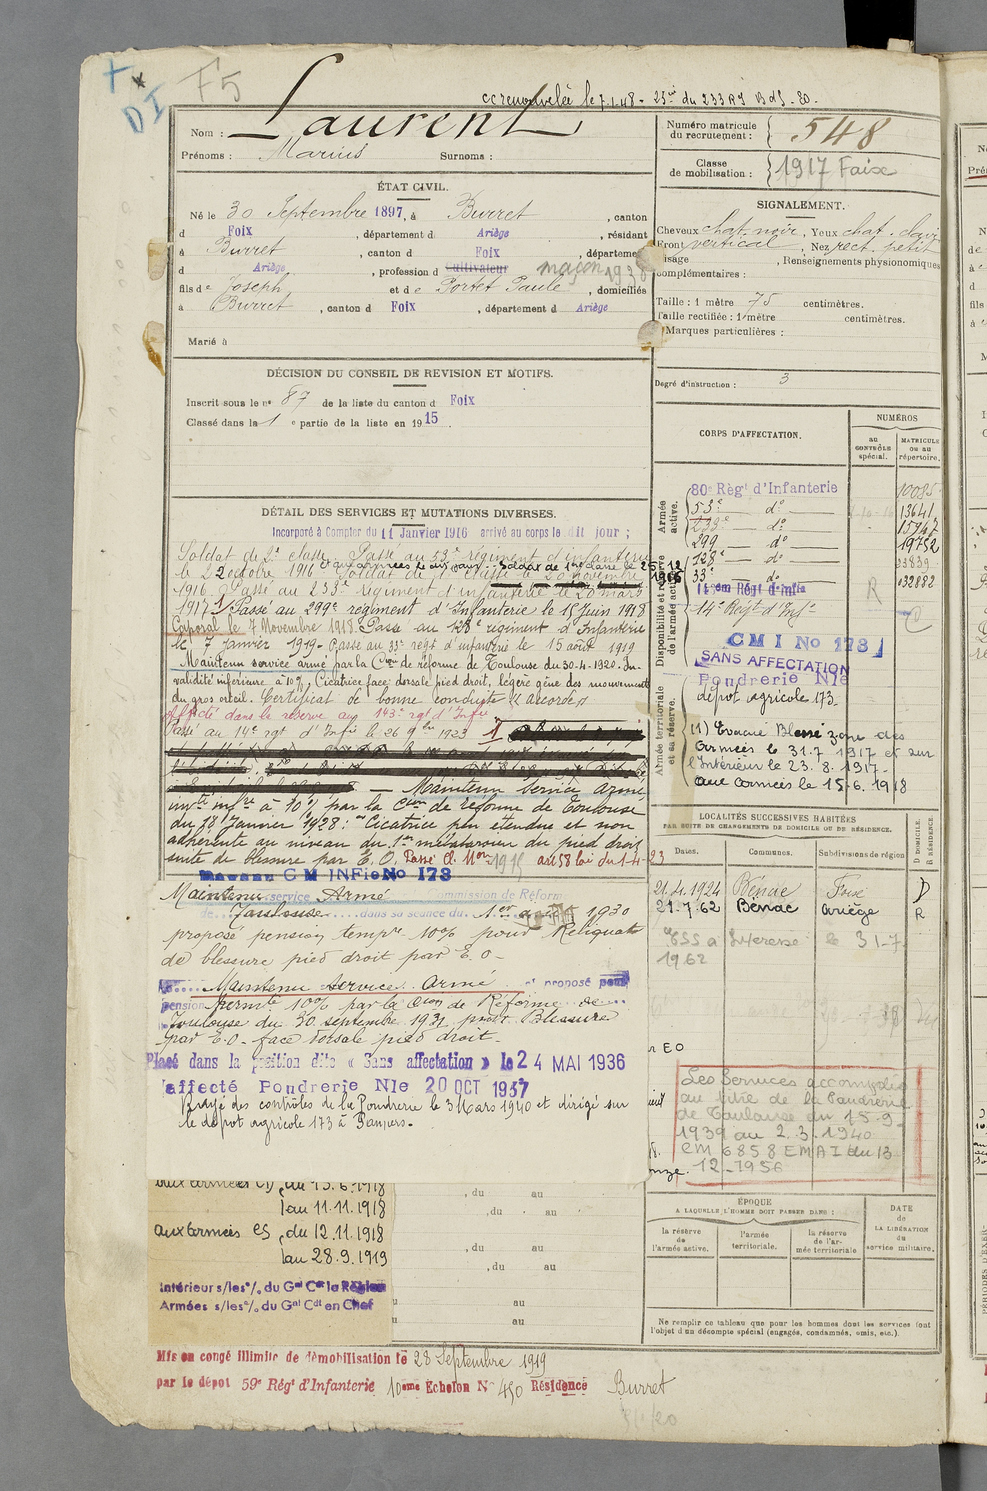 F5
DI
cc renouvelée le 7.1.48 - 25
du 233 RI
Nom : Laurent
Prénoms : Marius Surnoms :
Numéro matricule du recrutement : 548
Classe de mobilisation : 1917 Foix
ÉTAT CIVIL.
Né le 30 Septembre 1897, à Burret, canton
d Foix, département d Ariège, résidant
à Burret, canton d Foix, départeme
d Ariège, profession d Cultivateur maçon 1938
fils de Joseph et de Portet Paule, domiciliés
à Burret, canton d Foix, département d Ariège
Marié à
SIGNALEMENT.
Cheveux chat. noir, Yeux chat. clair
Front vertical, Nez rect. petit
isage , Renseignements physionomiques
complémentaires :
Taille : 1 mètre 75 centimètres.
Taille rectifiée : 1 mètre centimètres.
Marques particulières :
Degré d'instruction : 3
DÉCISION DU CONSEIL DE REVISION ET MOTIFS.
Inscrit sous le nº 87 de la liste du canton d Foix
Classé dans la 1 e partie de la liste en 1915.
CORPS D'AFFECTATION.
NUMÉROS
au CONTRÔLE spécial.
MATRICULE ou au répertoire.
Armée active.
Disponibilité et réserve de l'armée active.
Armée territoriale et sa réserve.
80e Régt d'Infanterie 10085
53e — dº — 13641
233e — dº — 15947
299 — dº — 19752
128e — dº — 33839
33e — dº — 032882
R
14e Régt d'Infie
CMI No 173
SANS AFFECTATION
Poudrerie Nle
dépôt agricole 173
(1) Evacué Blessé zone des
Armées le 31.7.1917 et sur
l'Intérieur le 23.8.1917
aux armées le 15.6.1918
DÉTAIL DES SERVICES ET MUTATIONS DIVERSES.
Incorporé à Compter du 11 Janvier 1916 arrivé au corps le dit jour ;
Soldat de 2e classe. Passé au 53e régiment d'infanterie
le 22 octobre 1916 Soldat de 1ère classe le 25.12
1916
1916. Passé au 233e régiment d'infanterie le 20 mars
1917. 1 Passé au 299e régiment d'Infanterie le 15 Juin 1918
Caporal le 7 Novembre 1918. Passé au 128e régiment d'Infanterie
le 7 Janvier 1919. Passé au 33e régt d'infanterie le 15 août 1919
Maintenu service armé par la Cion de réforme de Toulouse du 30.4.1920. In-
validité inférieure à 10%, Cicatrice face dorsale pied droit, légère gêne des mouvements
du gros orteil. Certificat de bonne conduite « accordé »
Affecté dans la réserve au 143e régt d'Infie
Passé au 14e régt d'Infie le 26 9bre 1923
Maintenu Service Armé
invté infre à 10% par la Cion de réforme de Toulouse
du 18 Janvier 1928 : "Cicatrice peu étendue et non
adhérente au niveau du 1er métatarsien du pied droit
suite de blessure par E.O. Passé Cl. Mon 1915 art 58 loi du 1-4-23
CM INFie No 173
Maintenu service Armé Commission de Réforme
de Toulouse dans sa séance du 1er 1930
proposé pension tempre 10% pour Reliquats
de blessure pied droit par E.O-
Maintenu Service Armé et proposé pour
pension permte 10% par la Cion de Réforme de
Toulouse du 30 septembre 1931 pour Blessure
par E.O- face dorsale pied droit.
Placé dans la position dite « Sans affectation » le 24 MAI 1936
affecté Poudrerie Nle 20 OCT 1937
Rayé des contrôles de la Poudrerie le 3 Mars 1940 et dirigé sur
le dépôt agricole 173 à Pamiers.
LOCALITÉS SUCCESSIVES HABITÉES
PAR SUITE DE CHANGEMENTS DE DOMICILE OU DE RÉSIDENCE.
Dates. Communes. Subdivisions de région D DOMICILE. R RÉSIDENCE.
21.4.1924 Bénac Foix D
21.7.62 Bénac Ariège R
1962
r EO
Les Services accomplis
au titre de la Poudrerie
de Toulouse du 15-9-
1939 au 2.3.1940
CM 6858 EMAI du 13-
12-1956
aux armées CD, du 15.6.1918
au 11.11.1918
aux armées CS, du 12.11.1918
au 28.9.1919
Intérieur s/les o/. du Gal Cdt la Région
Armées s/les o/. du Gal Cdt en Chef
, du au
,du au
, du au
,du au
au
au
ÉPOQUE
A LAQUELLE L'HOMME DOIT PASSER DANS :
la réserve de l'armée active.
l'armée territoriale.
la réserve de l'armée territoriale
DATE de LA LIBÉRATION du service militaire.
Ne remplir ce tableau que pour les hommes dont les services font
l'objet d'un décompte spécial (engagés, condamnés, omis, etc.).
Mis en congé illimité de démobilisation le 28 Septembre 1919
par le dépôt 59e Régt d'Infanterie 10ème Echelon Nº 450 Résidence Burret